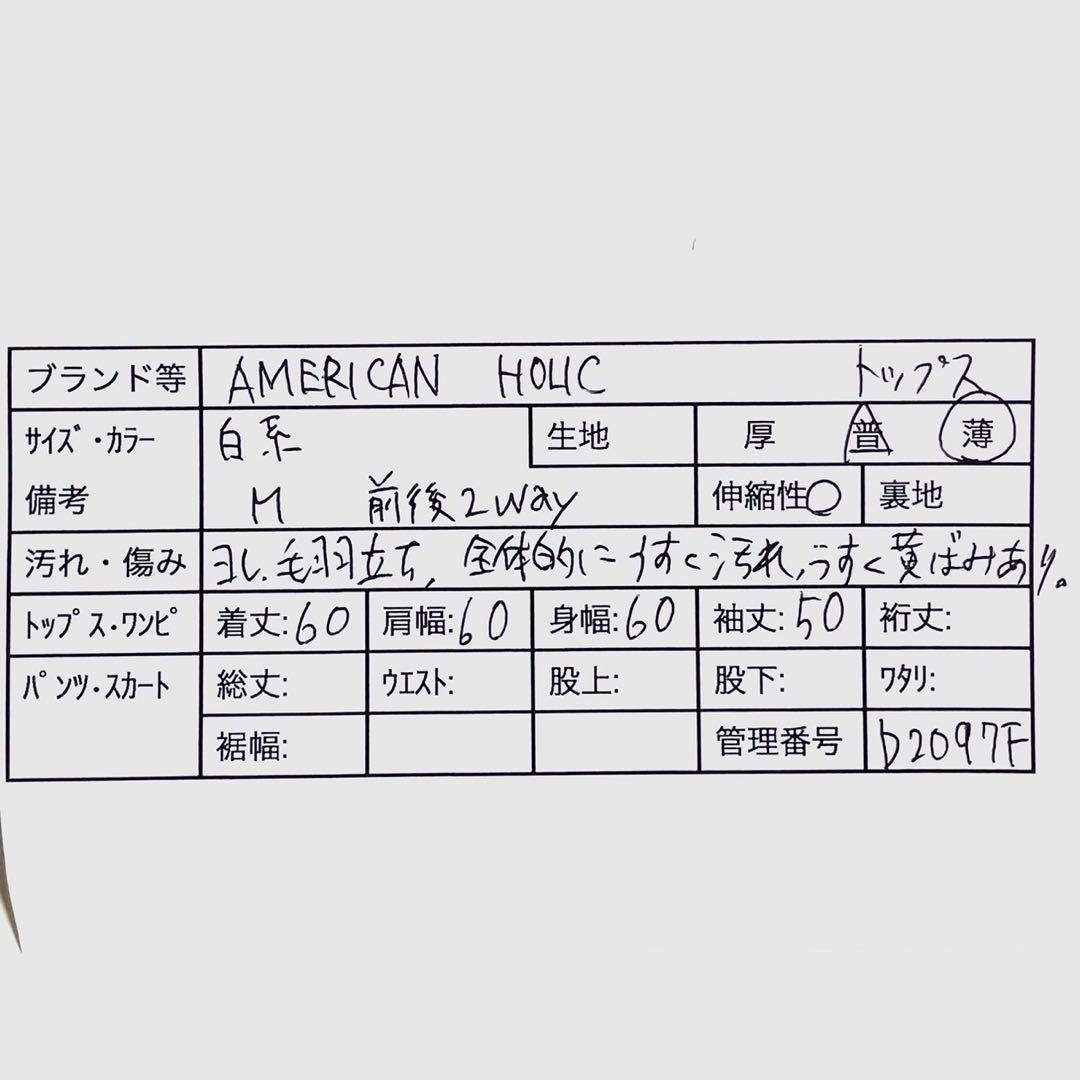 ブランド等 AMERICAN HOLIC トップス
サイズ・カラー 白系 生地 厚 普 薄
備考 M 前後2way 伸縮性○ 裏地
汚れ・傷み ヨレ、毛羽立ち、全体的にうすく汚れ、うすく黄ばみあり。
トップス・ワンピ 着丈:60 肩幅:60 身幅:60 袖丈:50 裄丈:
パンツ・スカート 総丈: ウエスト: 股上: 股下: ワタリ:
裾幅: 管理番号 D2097F